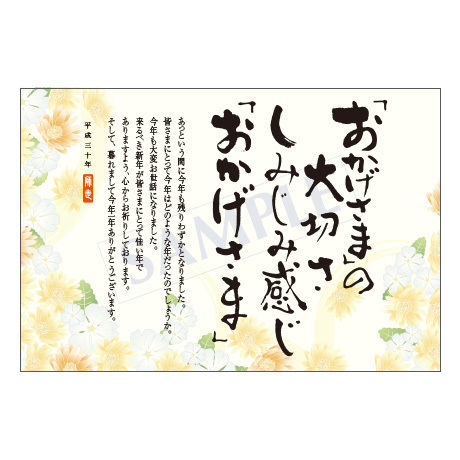 「おかげさま」の
大切さ
しみじみ感じ
「おかげさま」
あっという間に今年も残りわずかとなりました。
皆さまにとって今年はどのような年だったのでしょうか。
今年も大変お世話になりました。
来るべき新年が皆さまにとって佳い年で
ありますよう、心からお祈りしております。
そして、暮れまして今年一年ありがとうございます。
平成三十年
SAMPLE